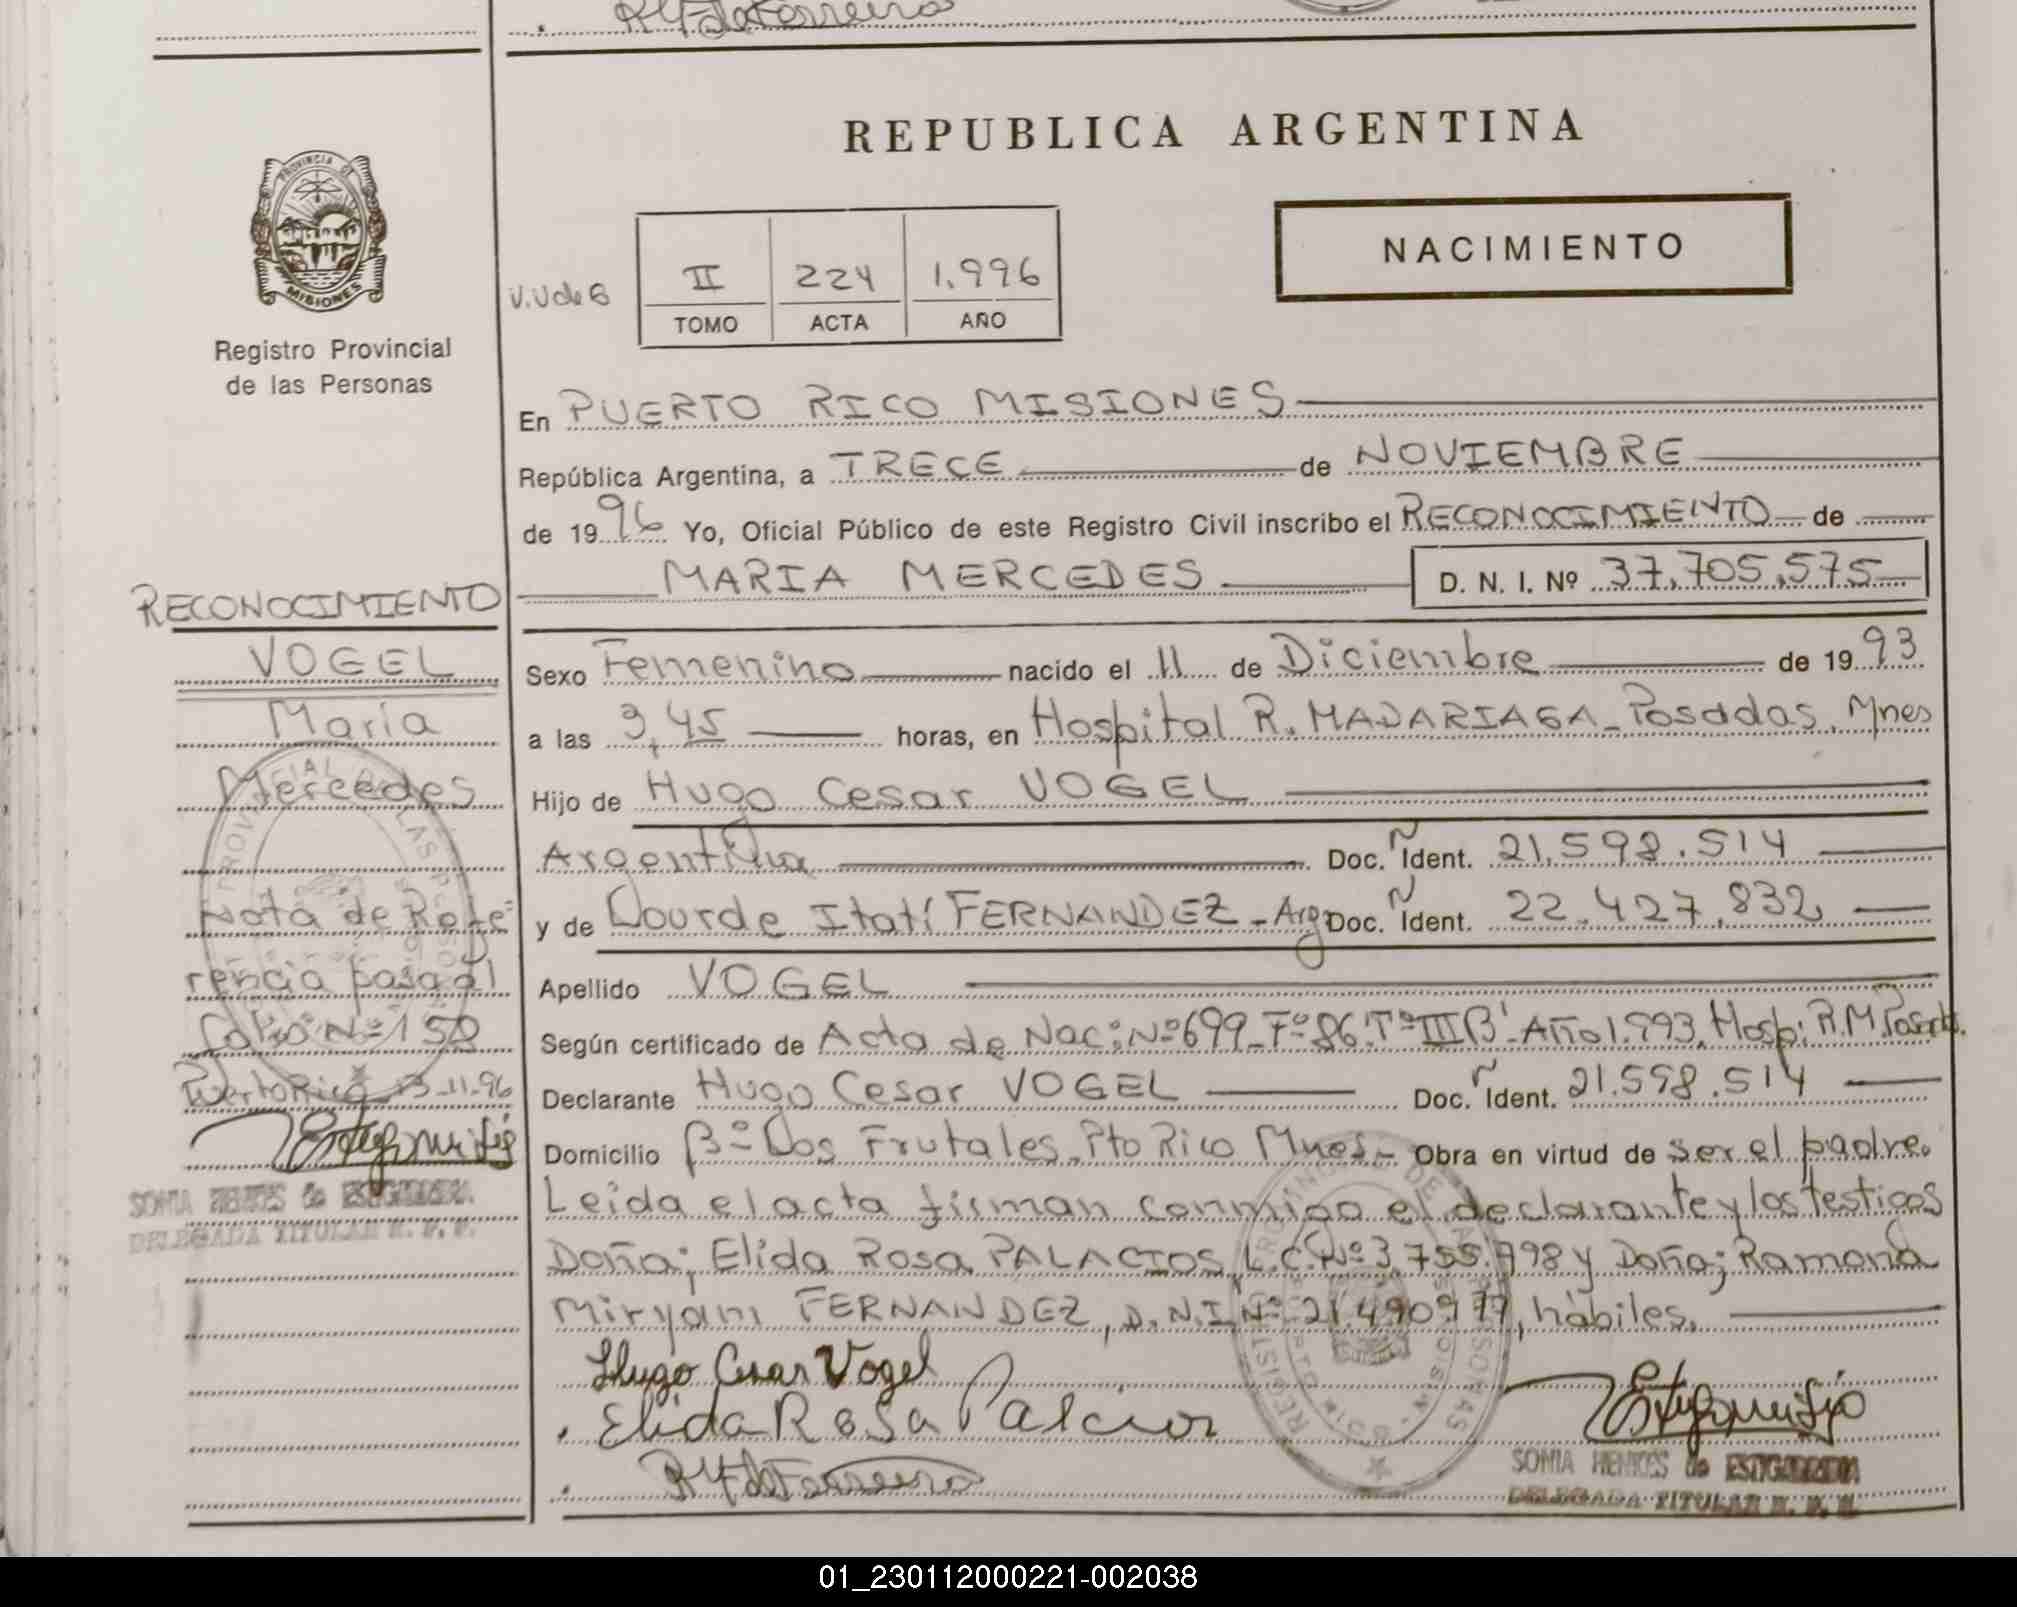 PROVINCIA DE
MISIONES
Registro Provincial
de las Personas
REPUBLICA ARGENTINA
NACIMIENTO
II 224 1.996
TOMO ACTA AÑO
En PUERTO RICO MISIONES
República Argentina, a TRECE de NOVIEMBRE
de 1996 Yo, Oficial Público de este Registro Civil inscribo el RECONOCIMIENTO de
MARIA MERCEDES D. N. I. Nº 37.705.575
Sexo Femenino nacido el 11 de Diciembre de 1993
a las 3,45 horas, en Hospital R. MADARIAGA - Posadas, Mnes
Hijo de Hugo Cesar VOGEL
Argentina Doc. Ident. 21.598.514
y de Lourde Itatí FERNANDEZ - Arg Doc. Ident. 22.427.832
Apellido VOGEL
Según certificado de Acta de Nac: Nº 699 - Fº 86. Tº III B' - Año 1.993. Hosp: R.M.
Declarante Hugo Cesar VOGEL Doc. Ident. 21.598.514
Domicilio Bº Los Frutales - Pto Rico Mnes - Obra en virtud de ser el padre.
Leida el acta firman conmigo el declarante y los testigos
Doña; Elida Rosa PALACIOS, L.C. Nº 3.755.798 y Doña; Ramona
Miryam FERNANDEZ, D.N.I. Nº 21.490.977, hábiles.
Hugo Cesar Vogel
Elida Rosa Palacios
SONIA HENKES de ESTIGARRIBIA
DELEGADA TITULAR R. P. P.
RECONOCIMIENTO
VOGEL
María
Mercedes
Nota de Refe=
rencia pasa al
folio Nº 158
Puerto Rico 13-11-96
SONIA HENKES de ESTIGARRIBIA
DELEGADA TITULAR R. P. P.
01_230112000221-002038